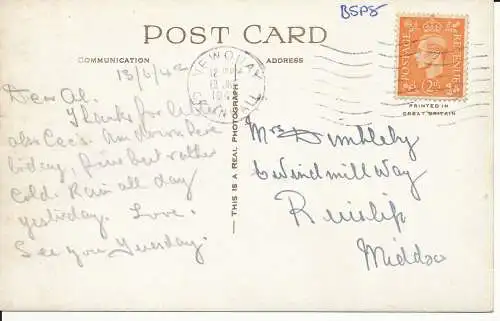 B5P85
POST CARD
COMMUNICATION
ADDRESS
NEWQUAY
CORNWALL
POSTAGE REVENUE
2D
PRINTED IN
GREAT BRITAIN
THIS IS A REAL PHOTOGRAPH
13/6/42
Dear Al.
Thanks for letter
also Cec's. Am down here
today, fine but rather
cold. Rain all day
yesterday. Love.
See you Tuesday.
Mrs Dimbleby
6 Windmill Way
Ruislip
Middx